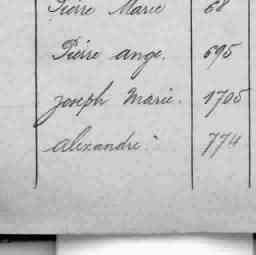 Pierre Marie 68
Pierre ange. 695
Joseph Marie. 1705
alexandre. 774